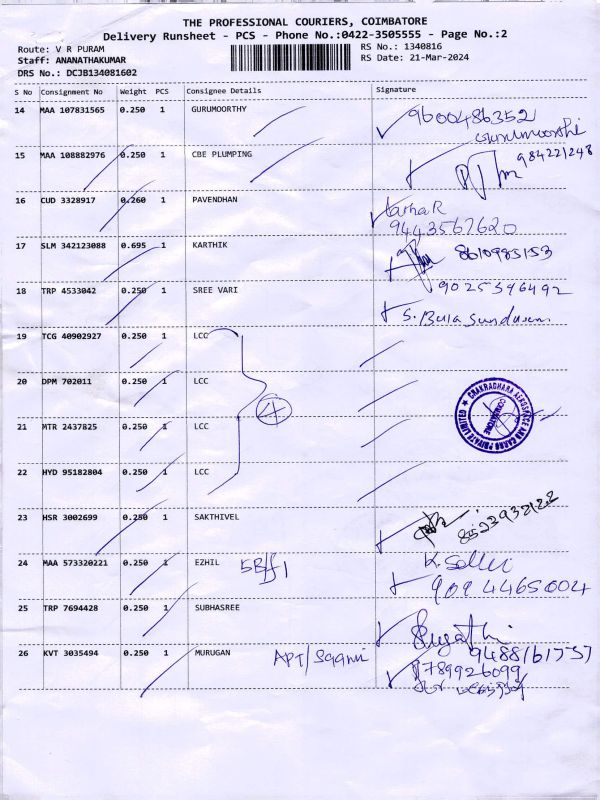 THE PROFESSIONAL COURIERS, COIMBATORE
Delivery Runsheet - PCS - Phone No.:0422-3505555 - Page No.:2
Route: V R PURAM
RS No.: 1340816
Staff: ANANATHAKUMAR
RS Date: 21-Mar-2024
DRS No.: DCJB134081602
S No Consignment No Weight PCS Consignee Details Signature
14 MAA 107831565 0.250 1 GURUMOORTHY 9600486352
Gurumoorthi
15 MAA 108882976 0.250 1 CBE PLUMPING
16 CUD 3328917 0.260 1 PAVENDHAN
9443567620
17 SLM 342123088 0.695 1 KARTHIK 8610985153
18 TRP 4533042 0.250 1 SREE VARI 9025546492
S. Bala Sundaram
19 TCG 40902927 0.250 1 LCC
20 DPM 702011 0.250 1 LCC
4
CHAKRADHARA AEROSPACE AND CARGO PRIVATE LIMITED
COIMBATORE
21 MTR 2437825 0.250 1 LCC
22 HYD 95182804 0.250 1 LCC
23 HSR 3002699 0.250 1 SAKTHIVEL
24 MAA 573320221 0.250 1 EZHIL
9094465004
25 TRP 7694428 0.250 1 SUBHASREE
Sujathi
9488161757
26 KVT 3035494 0.250 1 MURUGAN
9789926099